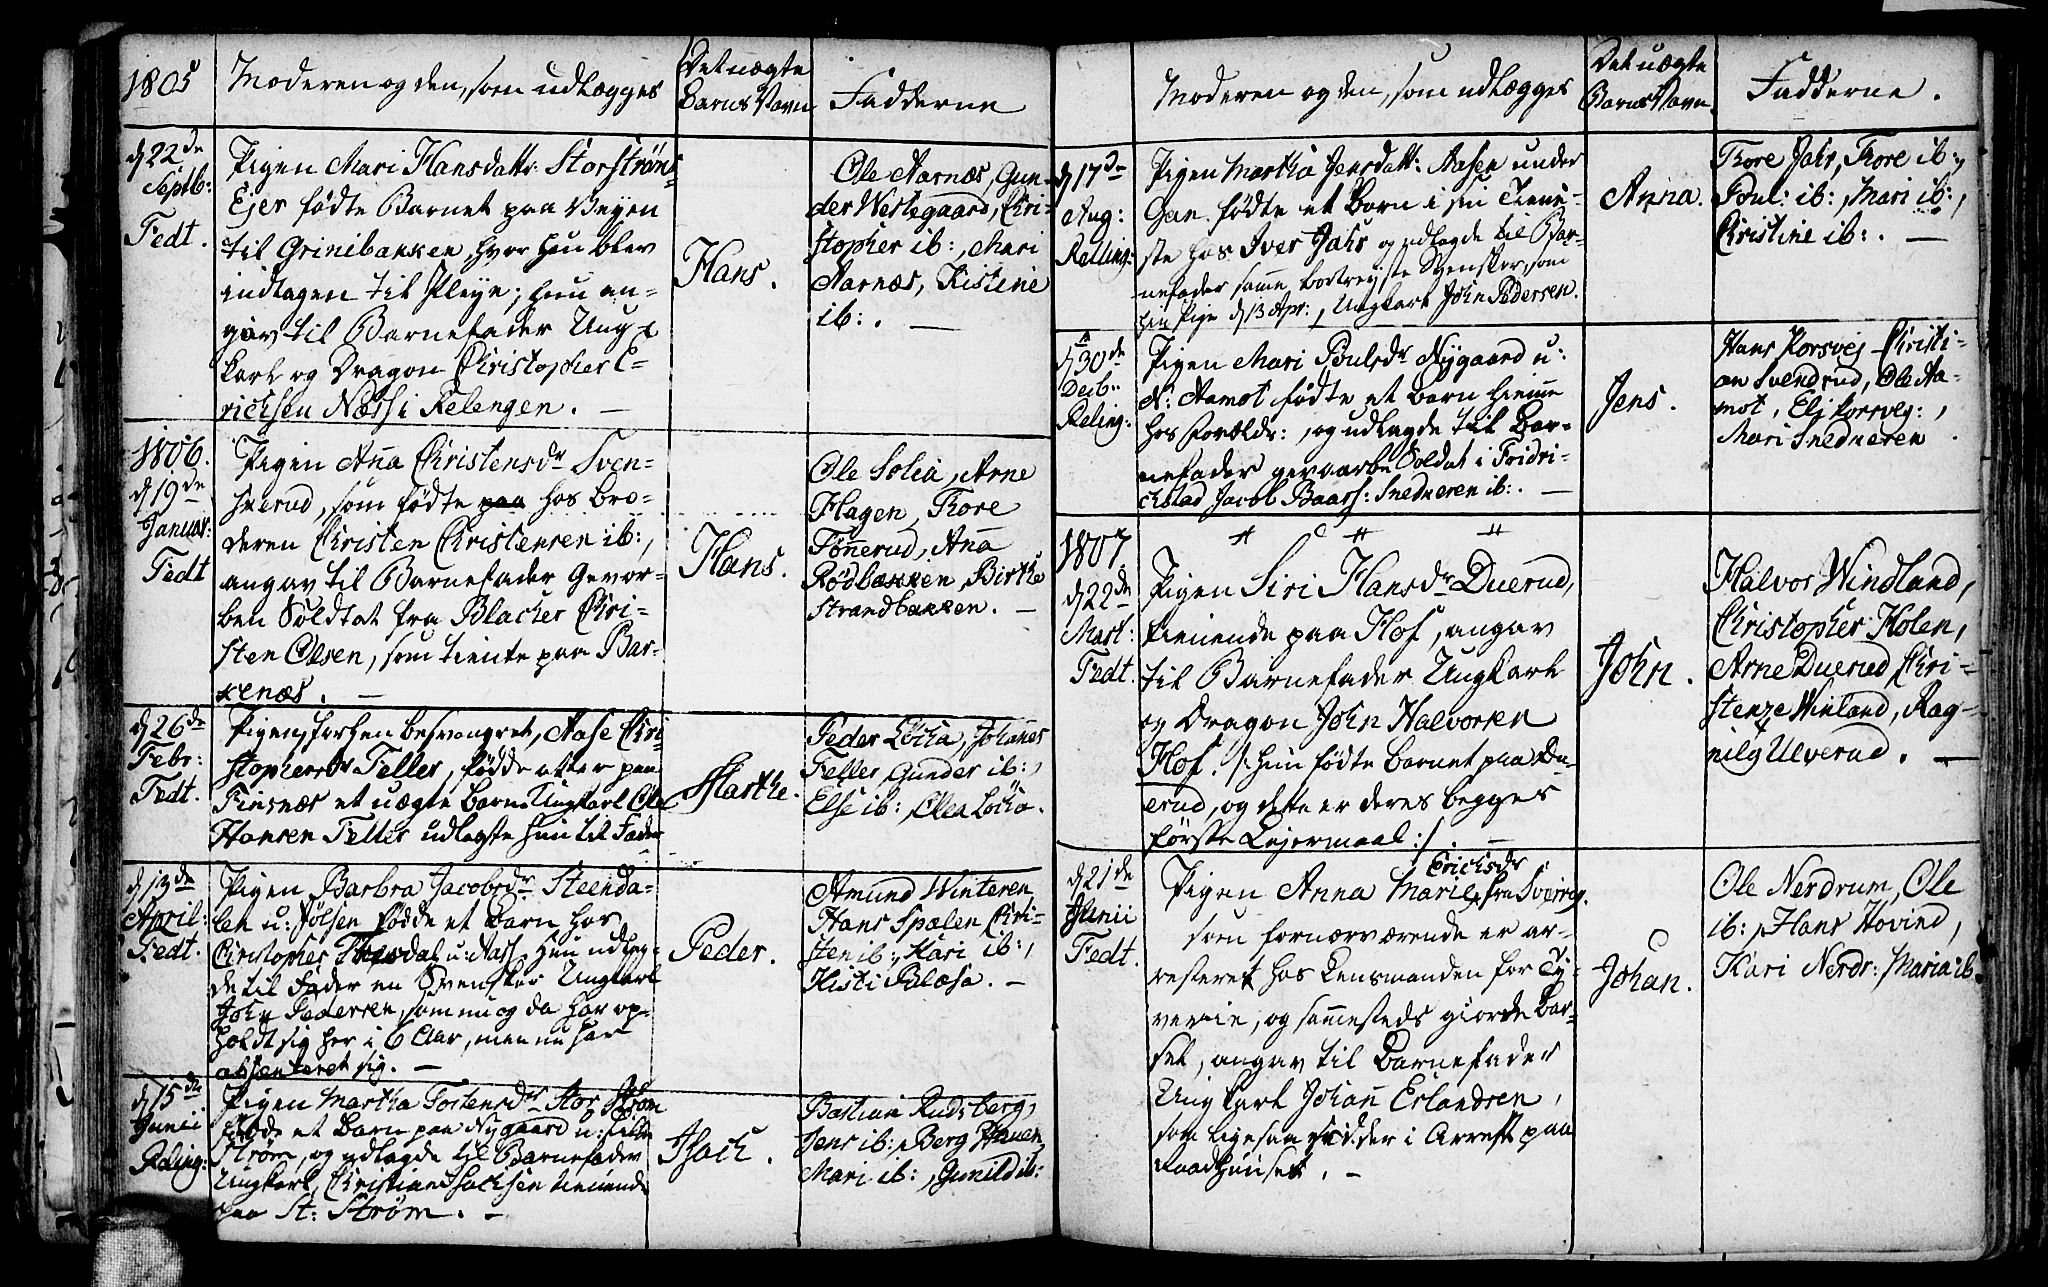 1805
Moderen og den, som udlægges
Det uægte
Barns Navn
Fadderne
d 22de
Septb:
Fedt.
Pigen Mari Hansdattr. Storstrøms
Ejer fødte Barnet paa Veyen
til Grinibakken, hvor hun blev
indtagen til Pleye; hun an-
gav til Barnefader Ung-
karl og Dragon Christopher E-
richsen Næss i Relengen. —
Hans.
Ole Aarnæs, Gun-
der Westegaard, Chri-
stopher ib:, Mari
Aarnæs, Kistine
ib:. —
1806.
d 19de
Januar:
Fedt
Pigen Aña Christensdr Sven-
skerud, som fødte paa hos Bro-
deren Christen Christensen ib:,
angav til Barnefader Gevor-
ben Soldtat fra Blacher Chri-
sten Olsen, som tiente paa Bar-
kenæs. —
Hans.
Ole Solia, Arne
Hagen, Tore
Tøñerud, Aña
Rødbakken, Birthe
Strandbakken. —
d 26de
Febr:
Fedt.
Pigen, forhen besvangret, Aase Chri-
stophersdr Feller, fødde atter paa
Finsnæs et uægte Barn. Ungkarl Ole
Hansen Feller udlagte hun til Fader
Marthe.
Peder Løcha, Johañes
Feller, Gunder ib:,
Else ib:, Olea Løcha.
d 13de
April:
Fedt.
Pigen Barbra Jacobsdr Steenda-
len u: Jølsen fødde et Barn hos
Christopher dal u: Aass. Hun udlag-
de til Fader en Svensker Ungkarl
John Pedersen, som nu og da har op-
holdt sig her i 6 Aar, men nu har
absenteret sig. —
Peder.
Amund Winteren,
Hans Spalen Chri-
sten ib:, Kari ib:,
Kisti Blæsa. —
d 15de
Junii
Reling:
Pigen Martha Tostensdr Stor Strøm
fødde et Barn paa Nygaard u: Lille
Strøm, og udlagde til Barnefader
Ungkarl, Christian Isachsen tienende
paa St: Strøm. —
Isach.
Bastian Rudsberg,
Jens ib:, Berg Hauen,
Mari ib:, Gunild ib:
Moderen og den, som udlægges
Det uægte
Barns Navn
Fadderne.
d 17de
Aug:
Relling:
Pigen Martha Jensdatt: Aasen under
Gan. fødte et Barn i sin Tiene-
ste hos Iver Jahr og udlagde til Bar-
nefader samme bortreyste Svensker, som
hin Pige d 13 Apr:, Ungkarl John Pedersen.
Anna.
Tore Jahr, Tore ib:,
Poul: ib:, Mari ib:,
Christine ib:. —
d 30de
Decb:
Reling:
Pigen Mari Poulsdr Nygaard u:
N: Aamot fødte et Barn hieme
hos Forældr:, og udlagde til Bar-
nefader gevorbe Soldat i Fridri-
chstad Jacob Baars: Snedkeren ib:. —
Jens.
Hans Korsvej Christi-
an Svendrud, Ole Aa-
mot, Eli Korsveg:,
Mari Snedkeren.
1807
d 22de
Mart:
Fedt.
Pigen Siri Hansdr Duerud,
tienende paa Hof, angav
til Barnefader Ungkarl
og Dragon John Halvorsen
Hof. /: hun fødte Barnet paa Du-
erud, og dette er deres begges
første Lejermaal :/. —
John.
Halvor Windland,
Christopher Holen,
Arne Duerud, Chri-
stenze Winland, Rag-
nild Ulverud. —
d 21de
Junii
Fedt.
Pigen Anna Marie Erichsdr fra Sverrig.
som fornærværende er ar-
resteret hos Lensmanden for Ty-
verie, og sam̄esteds giorde Bar-
sel, angav til Barnefader
Ungkarl Johañ Erlandsen,
som ligesaa sidder i Arrest paa
Raadhuuset. —
Johan.
Ole Nerdrum, Ole
ib:, Hans Hovind,
Kari Nerdr: Maria ib.